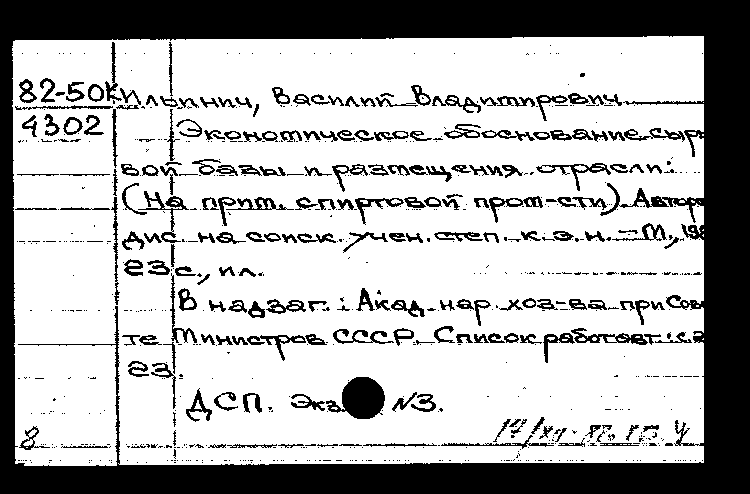 82-50К Ильинич, Василий Владимирович
4302 Экономическое обоснование сырь
вой базы и размещения отрасли:
(На прим. спиртовой пром-сти). Авторе
дис. на соиск. учен. степ. к. э. н. – М., 198
23 с., ил.
В надзаг.: Акад. нар. хоз-ва при Сове
те Министров СССР. Список работ авт.: с. 2
23.
ДСП. Экз. №3.
8